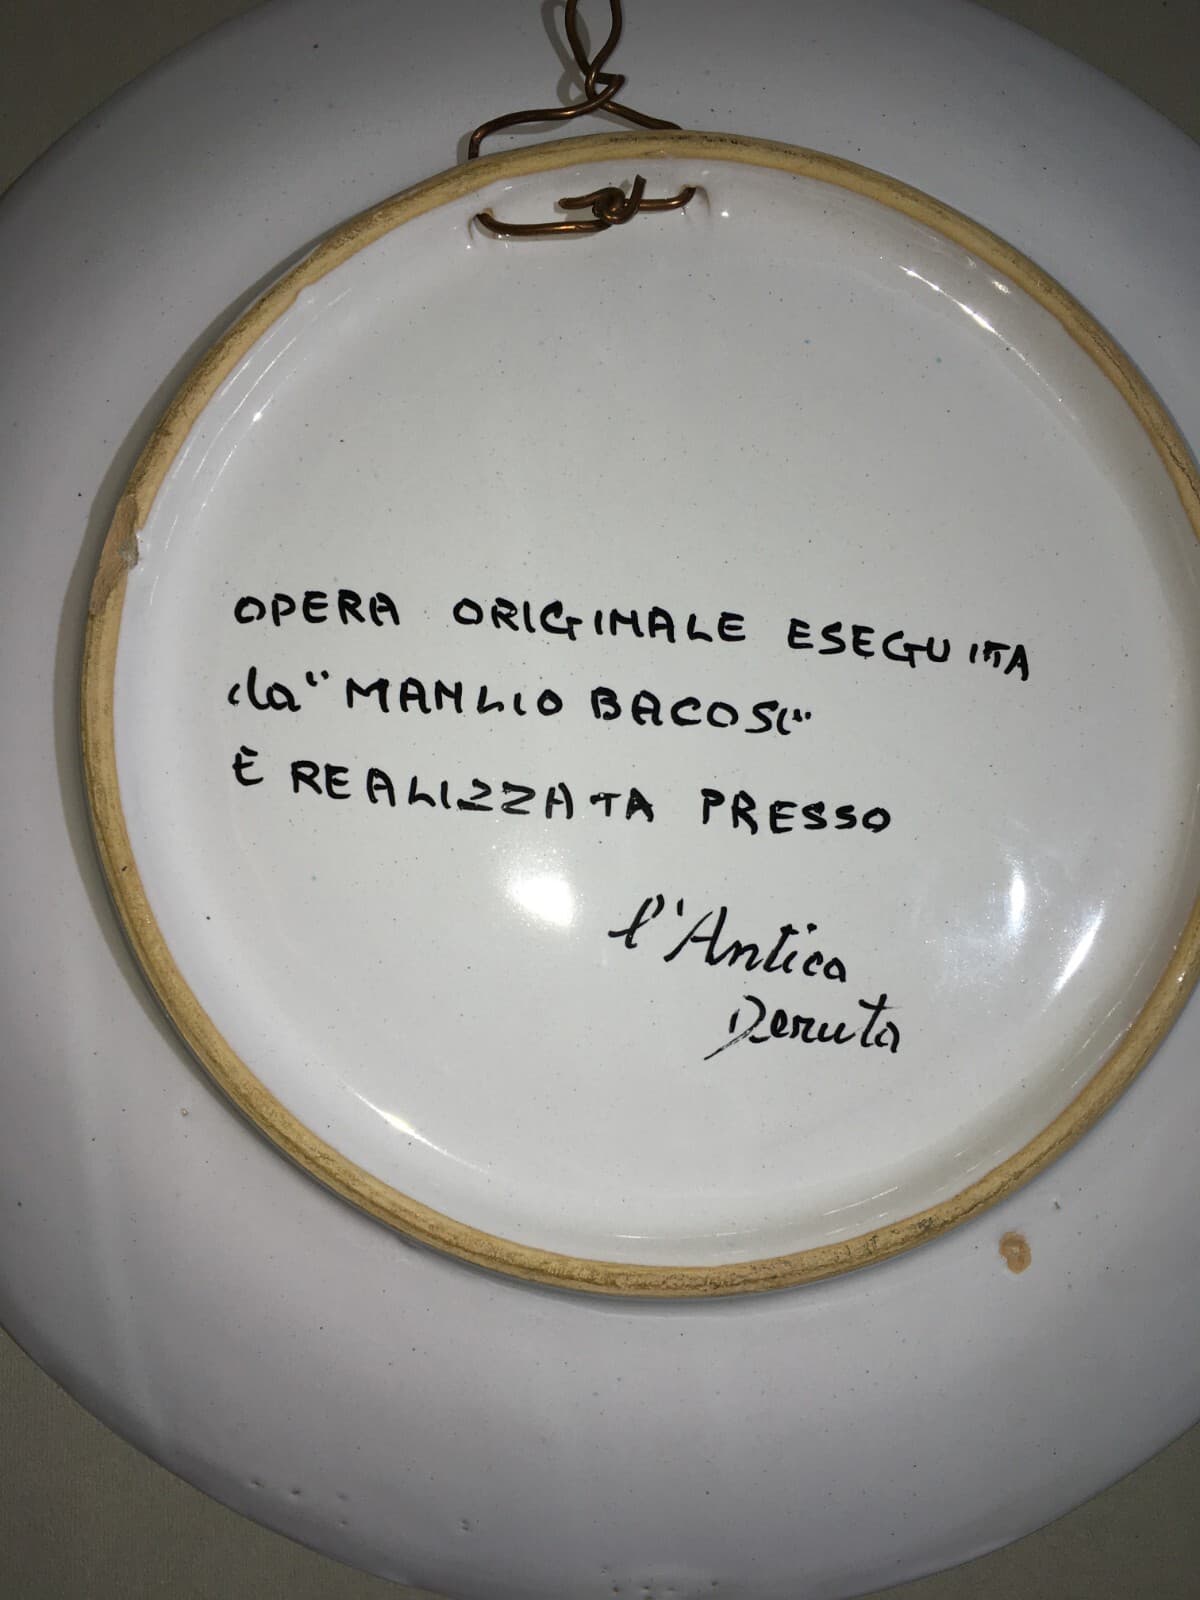 OPERA ORIGINALE ESEGUITA
da "MANLIO BACOSI"
È REALIZZATA PRESSO
l'Antica
Deruta